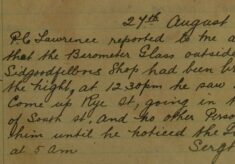 27th August
P.C. Lawrence reported to me a
that the Barometer Glass outside
Shop had been br
the night, at 12.30pm he saw
Come up Rye St, going in t
of South St. and no other Person
him until he noticed the
at 5 am
Sergt